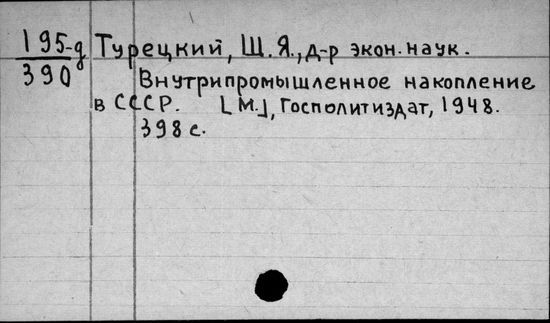 195-д
390
Турецкий, Ш. Я., д-р экон. наук.
Внутрипромышленное накопление
в СССР. [М.], Госполитиздат, 1948.
398 с.